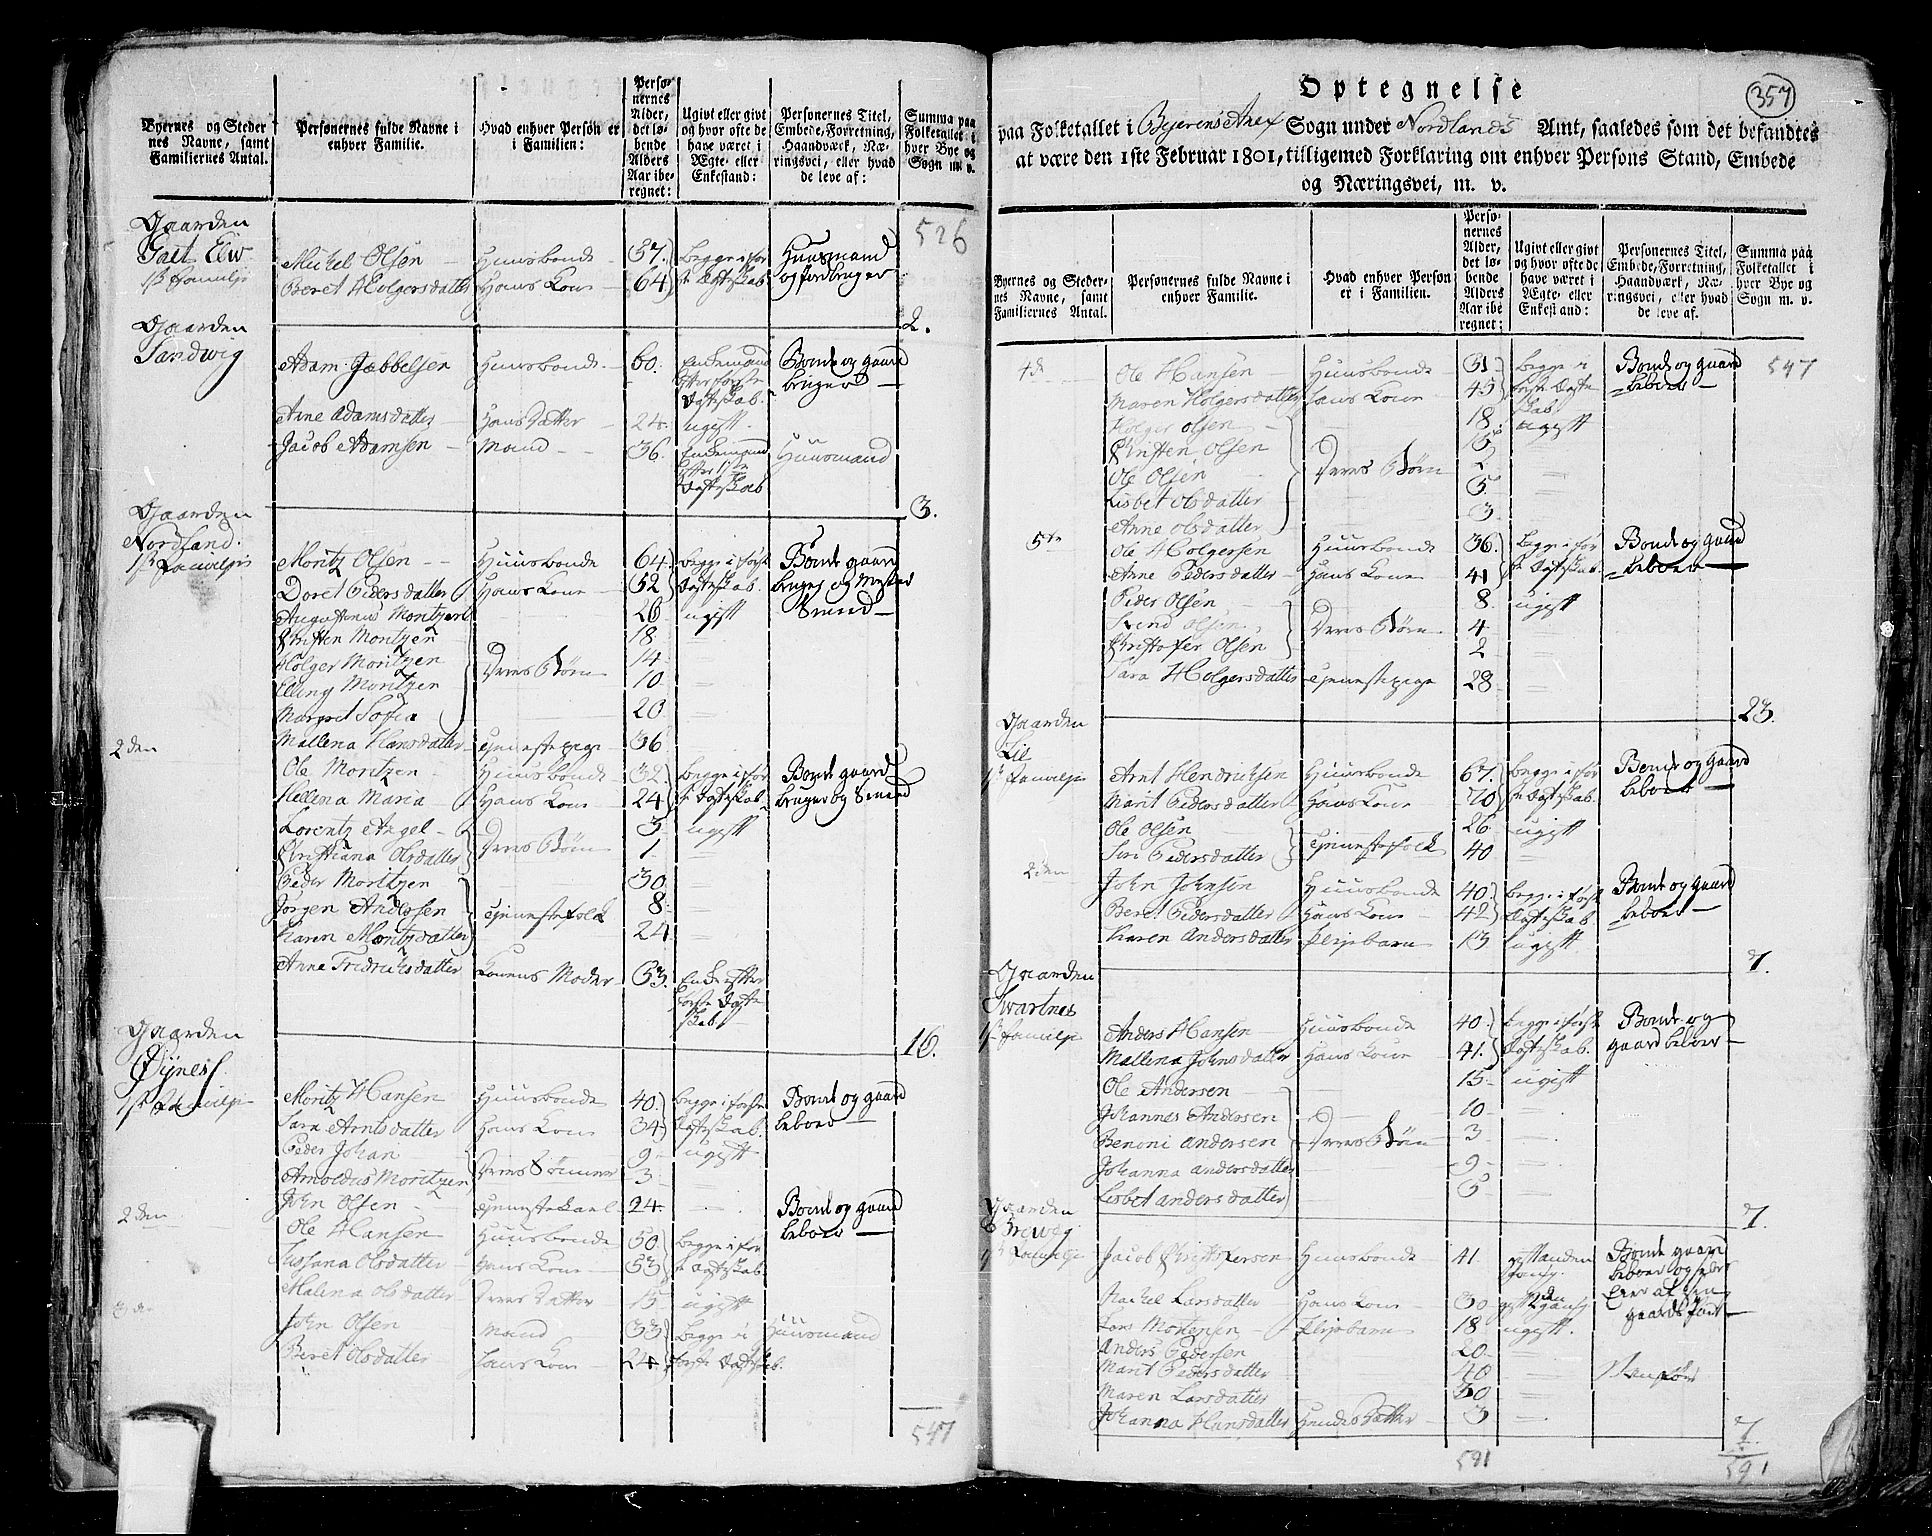 Byernes og Stedernes Navne, samt Familiernes Antal.
Personernes fulde Navne i enhver Familie.
Hvad enhver Person er i Familien:
Personernes Alder, det løbende Alders Aar iberegnet:
Ugivt eller givt og hvor ofte de have været i Ægte- eller Enkestand:
Personernes Titel, Embede, Forretning, Haandværk, Næringsvei, eller hvad de leve af:
Summa paa Folketallet i hver Bye og Sogn m. v.
Gaarden 526
Michel Olsen Huusbonde 57. Begge i før Huusmand
1ste Familje Beret Holgersdatter Hans Kone 64 Ægteskab og Jordbruger
2.
Gaarden
Sandwig Adam Jæbbelsen Huusbonde 60. Enkemand Bonde og gaard
Efter første bruger
Ægteskab.
Anne Adamsdatter Hans Datter 24. ugift
Jacob Adamsen Mand 36. Enkemand Huusmand
Efter 1ste
Ægteskab
3.
Gaarden
Nordland.
1ste Familje Moritz Olsen Huusbonde 64 Begge i først Bonde gaard
Doret Pedersdatter Hans Kone 52 Ægteskab. bruger og
Moritzen 26 ugift Smed
Christen Moritzen 18
Holger Moritzen 14
Elling Moritzen Deres Børn 10
Margret Sofia 20
Mallena Hansdatter tjenestepige 36
2den
Ole Moritzen Huusbonde 32 Begge i før Bonde gaard
Hellena Maria Hans Kone 24 Ægteskab. bruger og Smed
Lorentz Angel 3 ugift
Christiana Olsdatter Deres Børn 1.
Peder Moritzen 30
Jørgen Andersen tjenestefolk 8
Karen Moritzdatter 24
Anne Fredrichsdatter Konens Moder 63. Enke efter
første Ægte
skab
16.
Gaarden
Øÿnes
1ste Familje Moritz Hansen Huusbonde 40. Begge i første Bonde og gaard
Sara Arntsdatter Hans Kone 34 Ægteskab. beboer
Peder Johan 9 ugift
Arnoldus Moritzen Deres Sønner 3
John Olsen tjenestekarl 24. Bonde og gaard
2den Ole Hansen Huusbonde 50. Begge i før beboer
Sussana Olsdatter Hans Kone 53 Ægteskab.
Malena Olsdatter Deres Datter 15 ugift
John Olsen Mand 33 Begge i Huusmand
Beret Olsdatter Hans Kone 24 første Ægteskab.
547
357
Optegnelse
paa Folketallet i Bejerens Anex Sogn under Nordlands Amt, saaledes som det befandtes
at være den 1ste Februar 1801, tilligemed Forklaring om enhver Persons Stand, Embede
og Næringsvei, m. v.
Byernes og Stedernes Navne, samt Familiernes Antal.
Personernes fulde Navne i enhver Familie.
Hvad enhver Person er i Familien.
Personernes Alder, det løbende Alders Aar iberegnet:
Ugivt eller givt og hvor ofte de have været i Ægte- eller Enkestand:
Personernes Titel, Embede, Forretning, Haandværk, Næringsvei, eller hvad de leve af.
Summa paa Folketallet i hver Bye og Sogn m. v.
4de Ole Hansen Huusbonde 31 Begge i Bonde og gaard 547
Maren Holgersdatter Hans Kone 45 første Ægte beboer
Holger Olsen 18 skab ugift
Christen Olsen 15
Ole Olsen Deres Børn 2
Lisbet Olsdatter 5
Anne Olsdatter 3
5te Ole Holgersen Huusbonde 36. Begge i før Bonde og gaard
Anne Pedersdatter Hans Kone 41 Ægteskab. beboer
Peder Olsen 8 ugift
Olsen Deres Børn 4
Christofer Olsen 2
Sara Holgersdatter tjenestepige 28
23.
Gaarden
Lil
1ste Familje Arnt Hendrichsen Huusbonde 67. Begge i før Bonde og gaard
Marit Pedersdatter Hans Kone 70 Ægteskab. beboer
Ole Olsen 26 ugift
Siri Pedersdatter tjenestefolk 40
2den John Johnsen Huusbonde 40. Begge i først Bonde og gaard
Beret Pedersdatter Hans Kone 42 Ægteskab. beboer
Karen Andersdatter plejebarn 13 ugift
7.
Gaarden
Swartnes
1ste Familje Anders Hansen Huusbonde 40. Begge i først Bonde og
Mallena Johnsdatter Hans Kone 41. Ægteskab. gaard beboer
Ole Andersen 15 ugift
Johannes Andersen 10
Benoni Andersen Deres Børn 3
Johanna Andersdatter 9
Lisbet Andersdatter 5
7.
Gaarden
Brewig
1ste Familje Jacob Christophersen Huusbonde 41. Bonde gaard
beboer og
Rachel Larsdatter Hans Kone 30 gift 2den gang
Lars Mortensen plejebarn 18 ugift.
Anders Pedersen 20
Marit Pedersdatter 40
Maren Larsdatter 30
Johanna Hansdatter Hendes Datter 3
7.
591 591